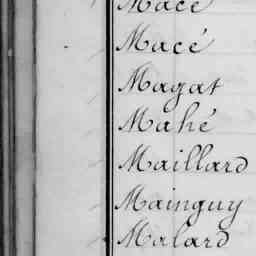 Macé
Macé
Magat
Mahé
Maillard
Mainguy
Malard